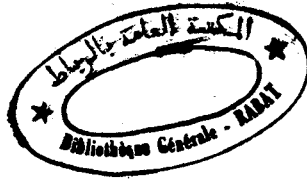 المكتبة العامة بالرباط
Bibliothèque Générale - RABAT